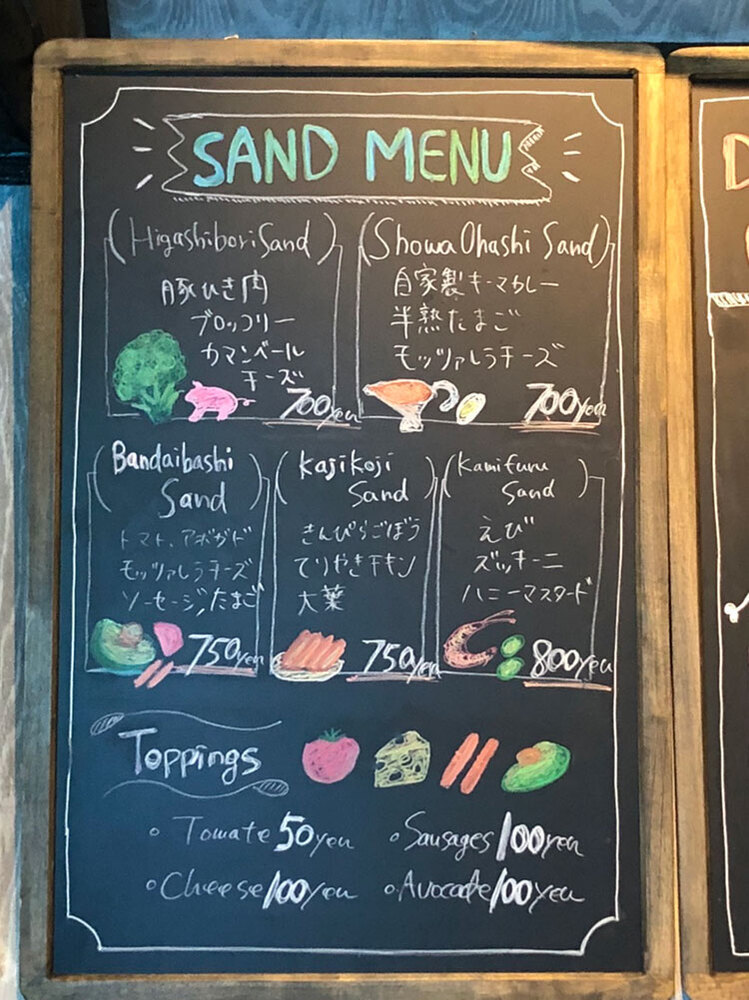 SAND MENU
(Higashibori Sand)
豚ひき肉
ブロッコリー
カマンベール
チーズ
700yen
(Showa Ohashi Sand)
自家製キーマカレー
半熟たまご
モッツァレラチーズ
700yen
(Bandaibashi
Sand)
トマト、アボガド
モッツァレラチーズ
ソーセージ、たまご
750yen
(Kajikoji
Sand)
きんぴらごぼう
てりやきチキン
大葉
750yen
(Kamifuru
Sand)
えび
ズッキーニ
ハニーマスタード
800yen
Toppings
• Tomate 50yen
• Sausages 100yen
• Cheese 100yen
• Avocade 100yen